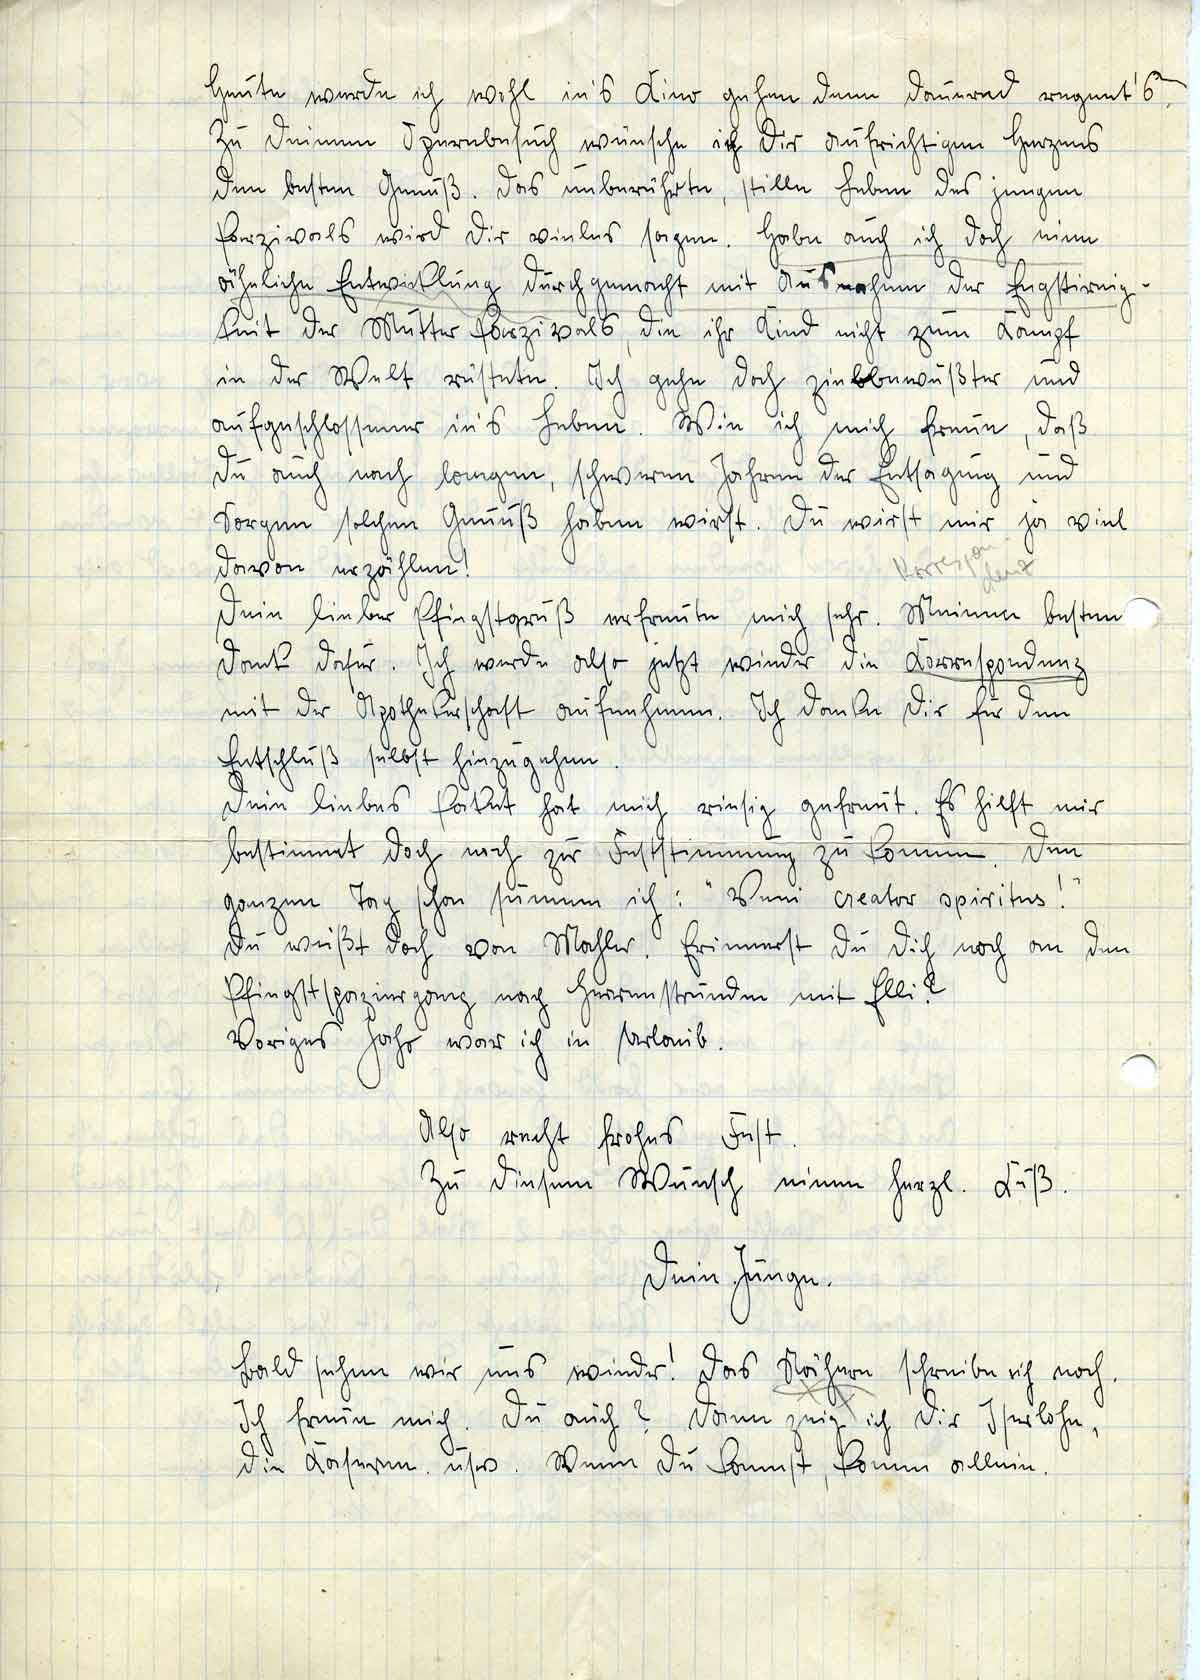 Heute werde ich wohl in's Kino gehen denn dauernd regnet's.
Zu Deinem Opernbesuch wünsche ich Dir aufrichtigen Herzens
den besten Genuß. Das unberührte, stille Leben des jungen
Parzivals wird Dir vieles sagen. Habe auch ich doch eine
ähnliche Entwicklung durchgemacht mit Ausnahme der Engstirnig-
keit der Mutter Parzivals, die ihr Kind nicht zum Kampf
in der Welt rüstete. Ich gehe doch zielbewußter und
aufgeschlossener in's Leben. Wie ich mich freue, daß
Du auch nach langen, schweren Jahren der Entsagung und
Sorgen solchen Genuß haben wirst. Du wirst mir ja viel
davon erzählen!
Korrespon
denz
Dein lieber Pfingstgruß erfreute mich sehr. Meinen besten
Dank dafür. Ich werde also jetzt wieder die Korrespondenz
mit der Apothekerschaft aufnehmen. Ich danke Dir für den
Entschluß selbst hinzugehen.
Dein liebes Paket hat mich riesig gefreut. Es hilft mir
bestimmt doch noch zur Feststimmung zu kommen. Den
ganzen Tag schon summe ich: "Veni creator spiritus!"
Du weißt doch von Mahler. Erinnerst Du Dich noch an den
Pfingstspaziergang nach Herrenstrunden mit Elli?
Voriges Jahr war ich in Urlaub.
Also recht frohes Fest.
Zu diesem Wunsch einen herzl. Kuß.
Dein Junge.
Bald sehen wir uns wieder! Das Nähere schreibe ich noch.
Ich freue mich. Du auch? Dann zeig ich Dir Iserlohn,
die Kaserne usw. Wenn Du kommst, komm allein.